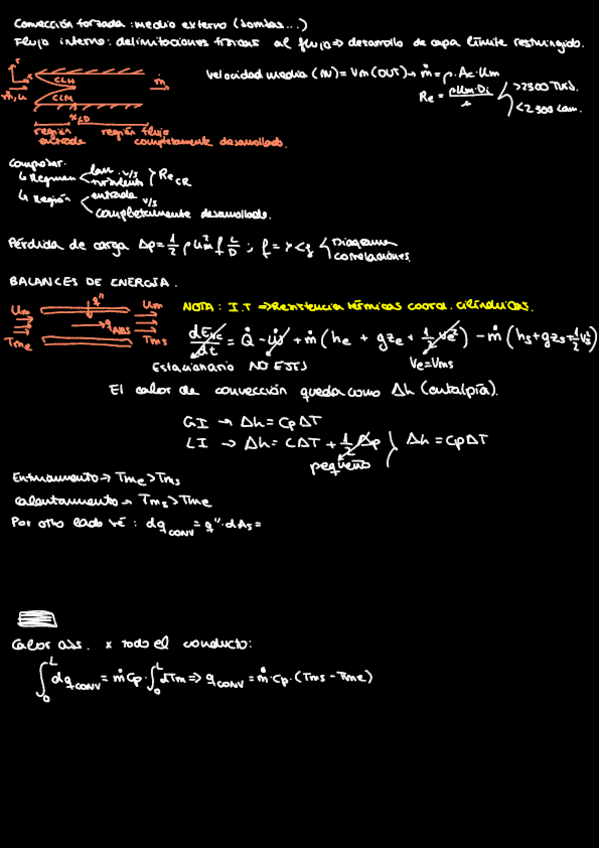 Convección forzada: medio externo (bombas...)
Flujo interno: delimitaciones físicas al flujo ⇒ desarrollo de capa límite restringido.
Velocidad media (IN) = Vm (OUT) → ṁ = ρ·Ac·um
r
x
CLH
CLM
ṁ, u
ṁ
Re = ρum·Di/μ
>2300 Turb.
<2300 Lam.
xCD
región entrada
región flujo completamente desarrollado.
Comprobar:
↳ Régimen lam. v/s turbulento ReCR
↳ Región entrada v/s completamente desarrollada.
Pérdida de carga Δp = 1/2 ρ um² f L/D ; f =
Diagrama
correlaciones
BALANCES DE ENERGÍA.
q"
Um
Um
qABS
Tme
Tms
NOTA: I.T ⇒ Resistencia térmicas coord. cilíndricas.
dEvc/dt = Q̇ - ẇ + ṁ (he + gze + 1/2 ve²) - ṁ (hs + gzs + 1/2 vs²)
Estacionario NO EJES
Ve=Vms
El calor de convección queda como Δh (entalpía).
GI → Δh = CpΔT
LI → Δh = CΔT + 1/2 Δp
Δh = CpΔT
pequeño
Enfriamiento → Tme > Tms
calentamiento → Tms > Tme
Por otro lado : dqCONV = q"·dAs =
Calor abs. x todo el conducto:
∫₀ᴸ dqCONV = ṁCp·∫₀ᴸ dTm ⇒ qCONV = ṁ·Cp·(Tms - Tme)